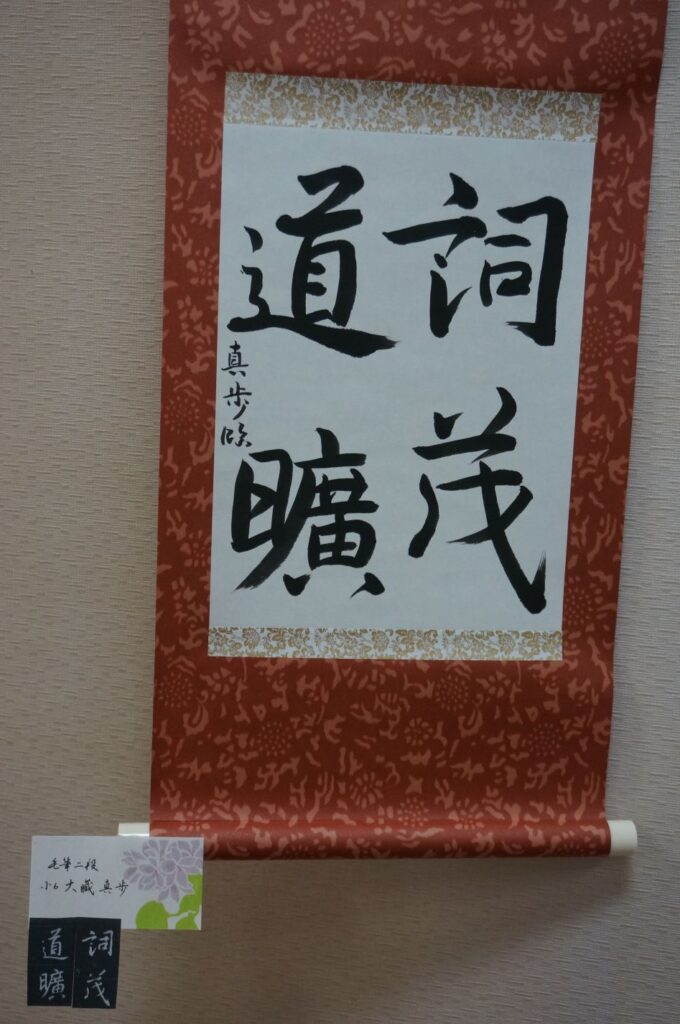 詞茂
道曠
真歩臨
毛筆二段
小6 大藏 真歩
詞茂
道曠